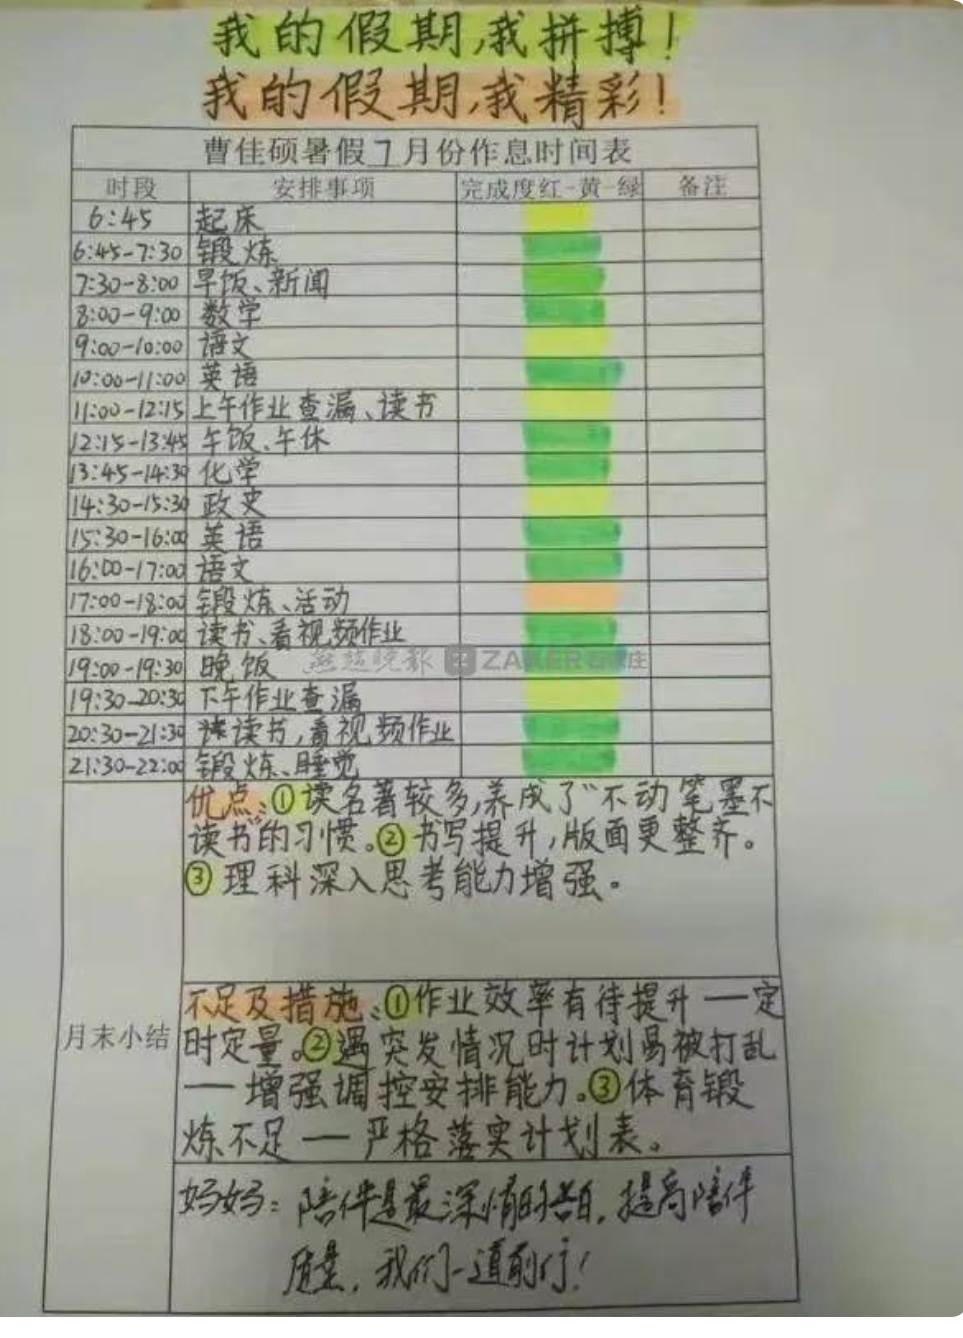 我的假期,我拼搏!
我的假期,我精彩!
曹佳硕暑假7月份作息时间表
时段 安排事项 完成度红-黄-绿 备注
6:45 起床
6:45-7:30 锻炼
7:30-8:00 早饭、新闻
8:00-9:00 数学
9:00-10:00 语文
10:00-11:00 英语
11:00-12:15 上午作业查漏、读书
12:15-13:45 午饭、午休
13:45-14:30 化学
14:30-15:30 政史
15:30-16:00 英语
16:00-17:00 语文
17:00-18:00 锻炼、活动
18:00-19:00 读书、看视频作业
19:00-19:30 晚饭 燕赵晚报 ZAKER石家庄
19:30-20:30 下午作业查漏
20:30-21:30 读书,看视频作业
21:30-22:00 锻炼、睡觉
月末小结
优点:①读名著较多,养成了"不动笔墨不
读书"的习惯。②书写提升,版面更整齐。
③理科深入思考能力增强。
不足及措施:①作业效率有待提升——定
时定量。②遇突发情况时计划易被打乱
——增强调控安排能力。③体育锻
炼不足——严格落实计划表。
妈妈:陪伴是最深情的告白,提高陪伴
质量,我们一道前行!